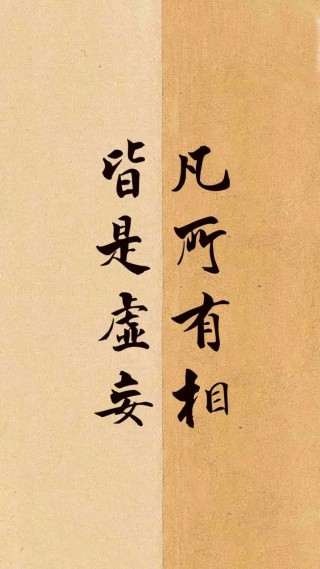 凡所有相
皆是虛妄